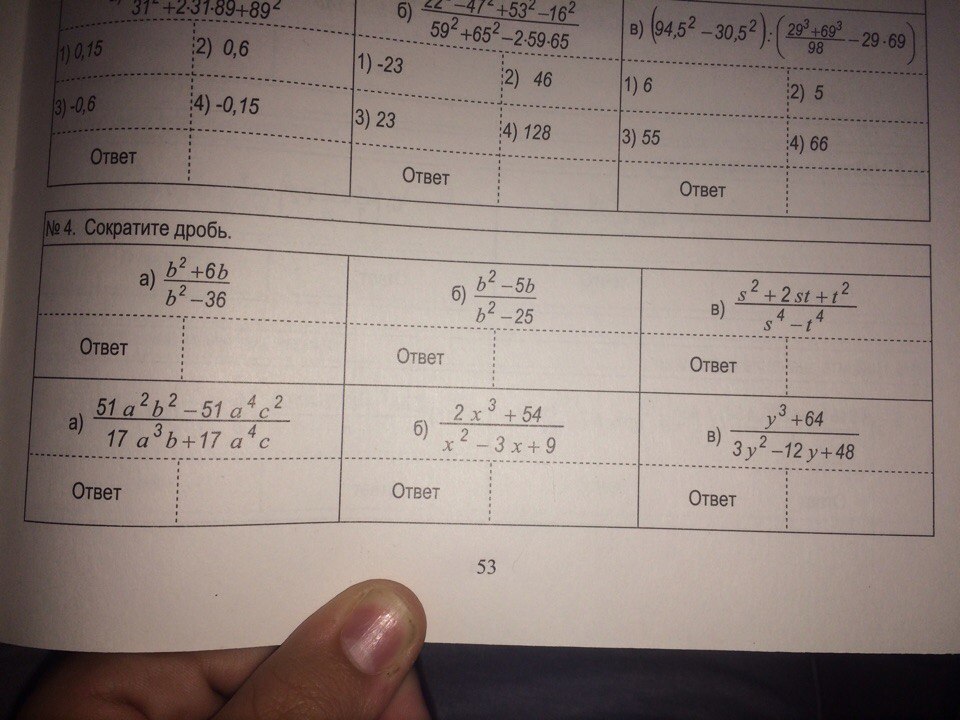 31² + 2·31·89 + 89²
б) (22² − 47² + 53² − 16²) / (59² + 65² − 2·59·65)
в) (94,5² − 30,5²) : ((29³ + 69³) / 98 − 29·69)
1) 0,15 2) 0,6
3) -0,6 4) -0,15
Ответ
1) -23 2) 46
3) 23 4) 128
Ответ
1) 6 2) 5
3) 55 4) 66
Ответ
№ 4. Сократите дробь.
а) (b² + 6b) / (b² − 36)
б) (b² − 5b) / (b² − 25)
в) (s² + 2st + t²) / (s⁴ − t⁴)
Ответ Ответ Ответ
а) (51 a²b² − 51 a⁴c²) / (17 a³b + 17 a⁴c)
б) (2x³ + 54) / (x² − 3x + 9)
в) (y³ + 64) / (3y² − 12y + 48)
Ответ Ответ Ответ
53